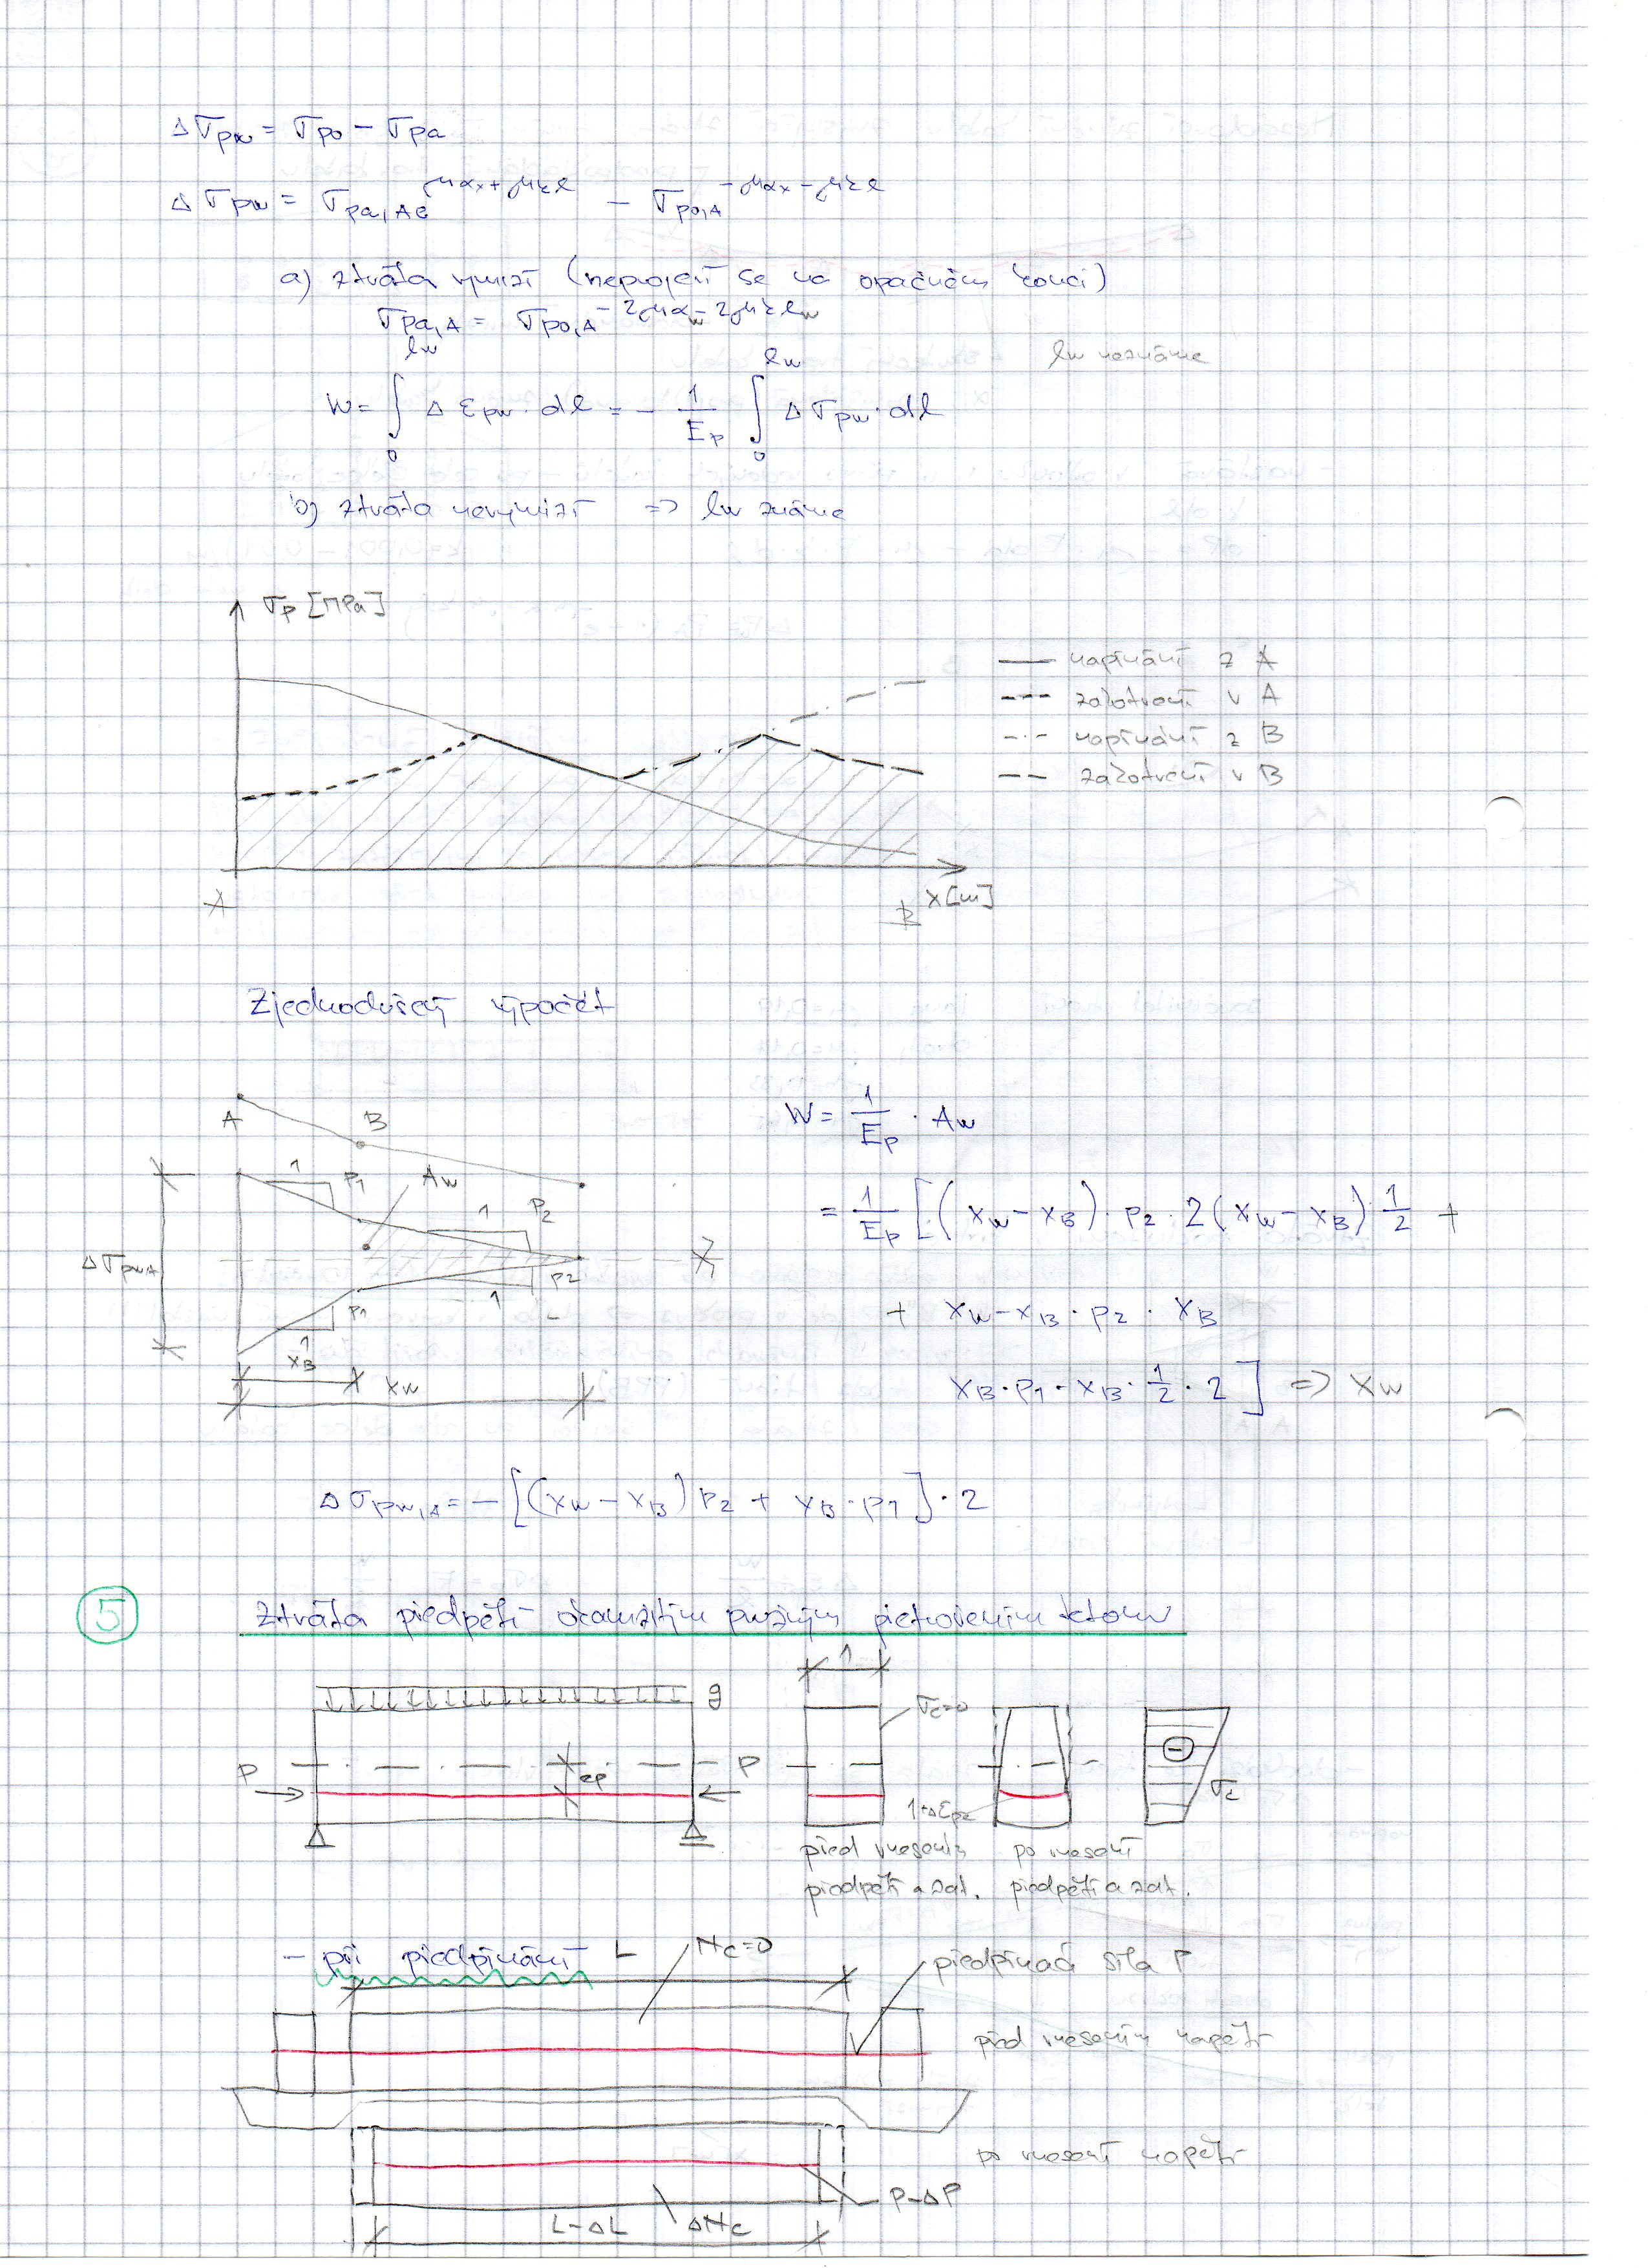 Δσpw = σpo - σpa
Δσpw = σpa,A e^μαx+μkl - σpo,A^-μαx-μkl
a) ztráta vymizí (neprojeví se na opačném konci)
σpa,A = σpo,A^-2μαw-2μklw
lw neznáme
W = ∫₀^lw Δεpw · dl = - 1/Ep ∫₀^lw Δσpw · dl
b) ztráta nevymizí => lw známe
σp [MPa]
napínání z A
zakotvení v A
napínání z B
zakotvení v B
A
B
x [m]
Zjednodušený výpočet
A
B
1
p1
Aw
1
p2
ΔσpwA
p1
1
p2
1
xB
xw
W = 1/Ep · Aw
= 1/Ep [(xw - xB) · p2 · 2(xw - xB) · 1/2 +
+ xw - xB · p2 · xB
xB · p1 · xB · 1/2 · 2] => xw
Δσpw,A = -[(xw - xB) p2 + xB · p1] · 2
5 Ztráta předpětí okamžitým pružným přetvořením betonu
g
P
ep
P
1
σc=0
1+Δεpc
σc
před vnesením předpětí a zat.
po vnesení předpětí a zat.
- při předpínání
L
Nc=0
předpínací síla P
před vnesením napětí
po vnesení napětí
P-ΔP
L-ΔL
ΔNc